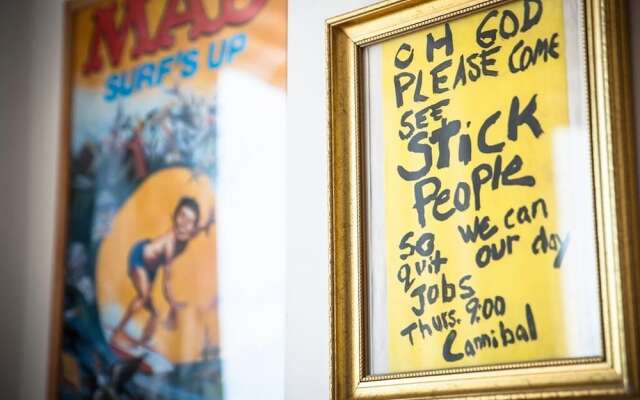 MAD
SURF'S UP
OH GOD
PLEASE COME
SEE
Stick
People
so we can
quit our day
Jobs
Thurs. 9:00
Cannibal